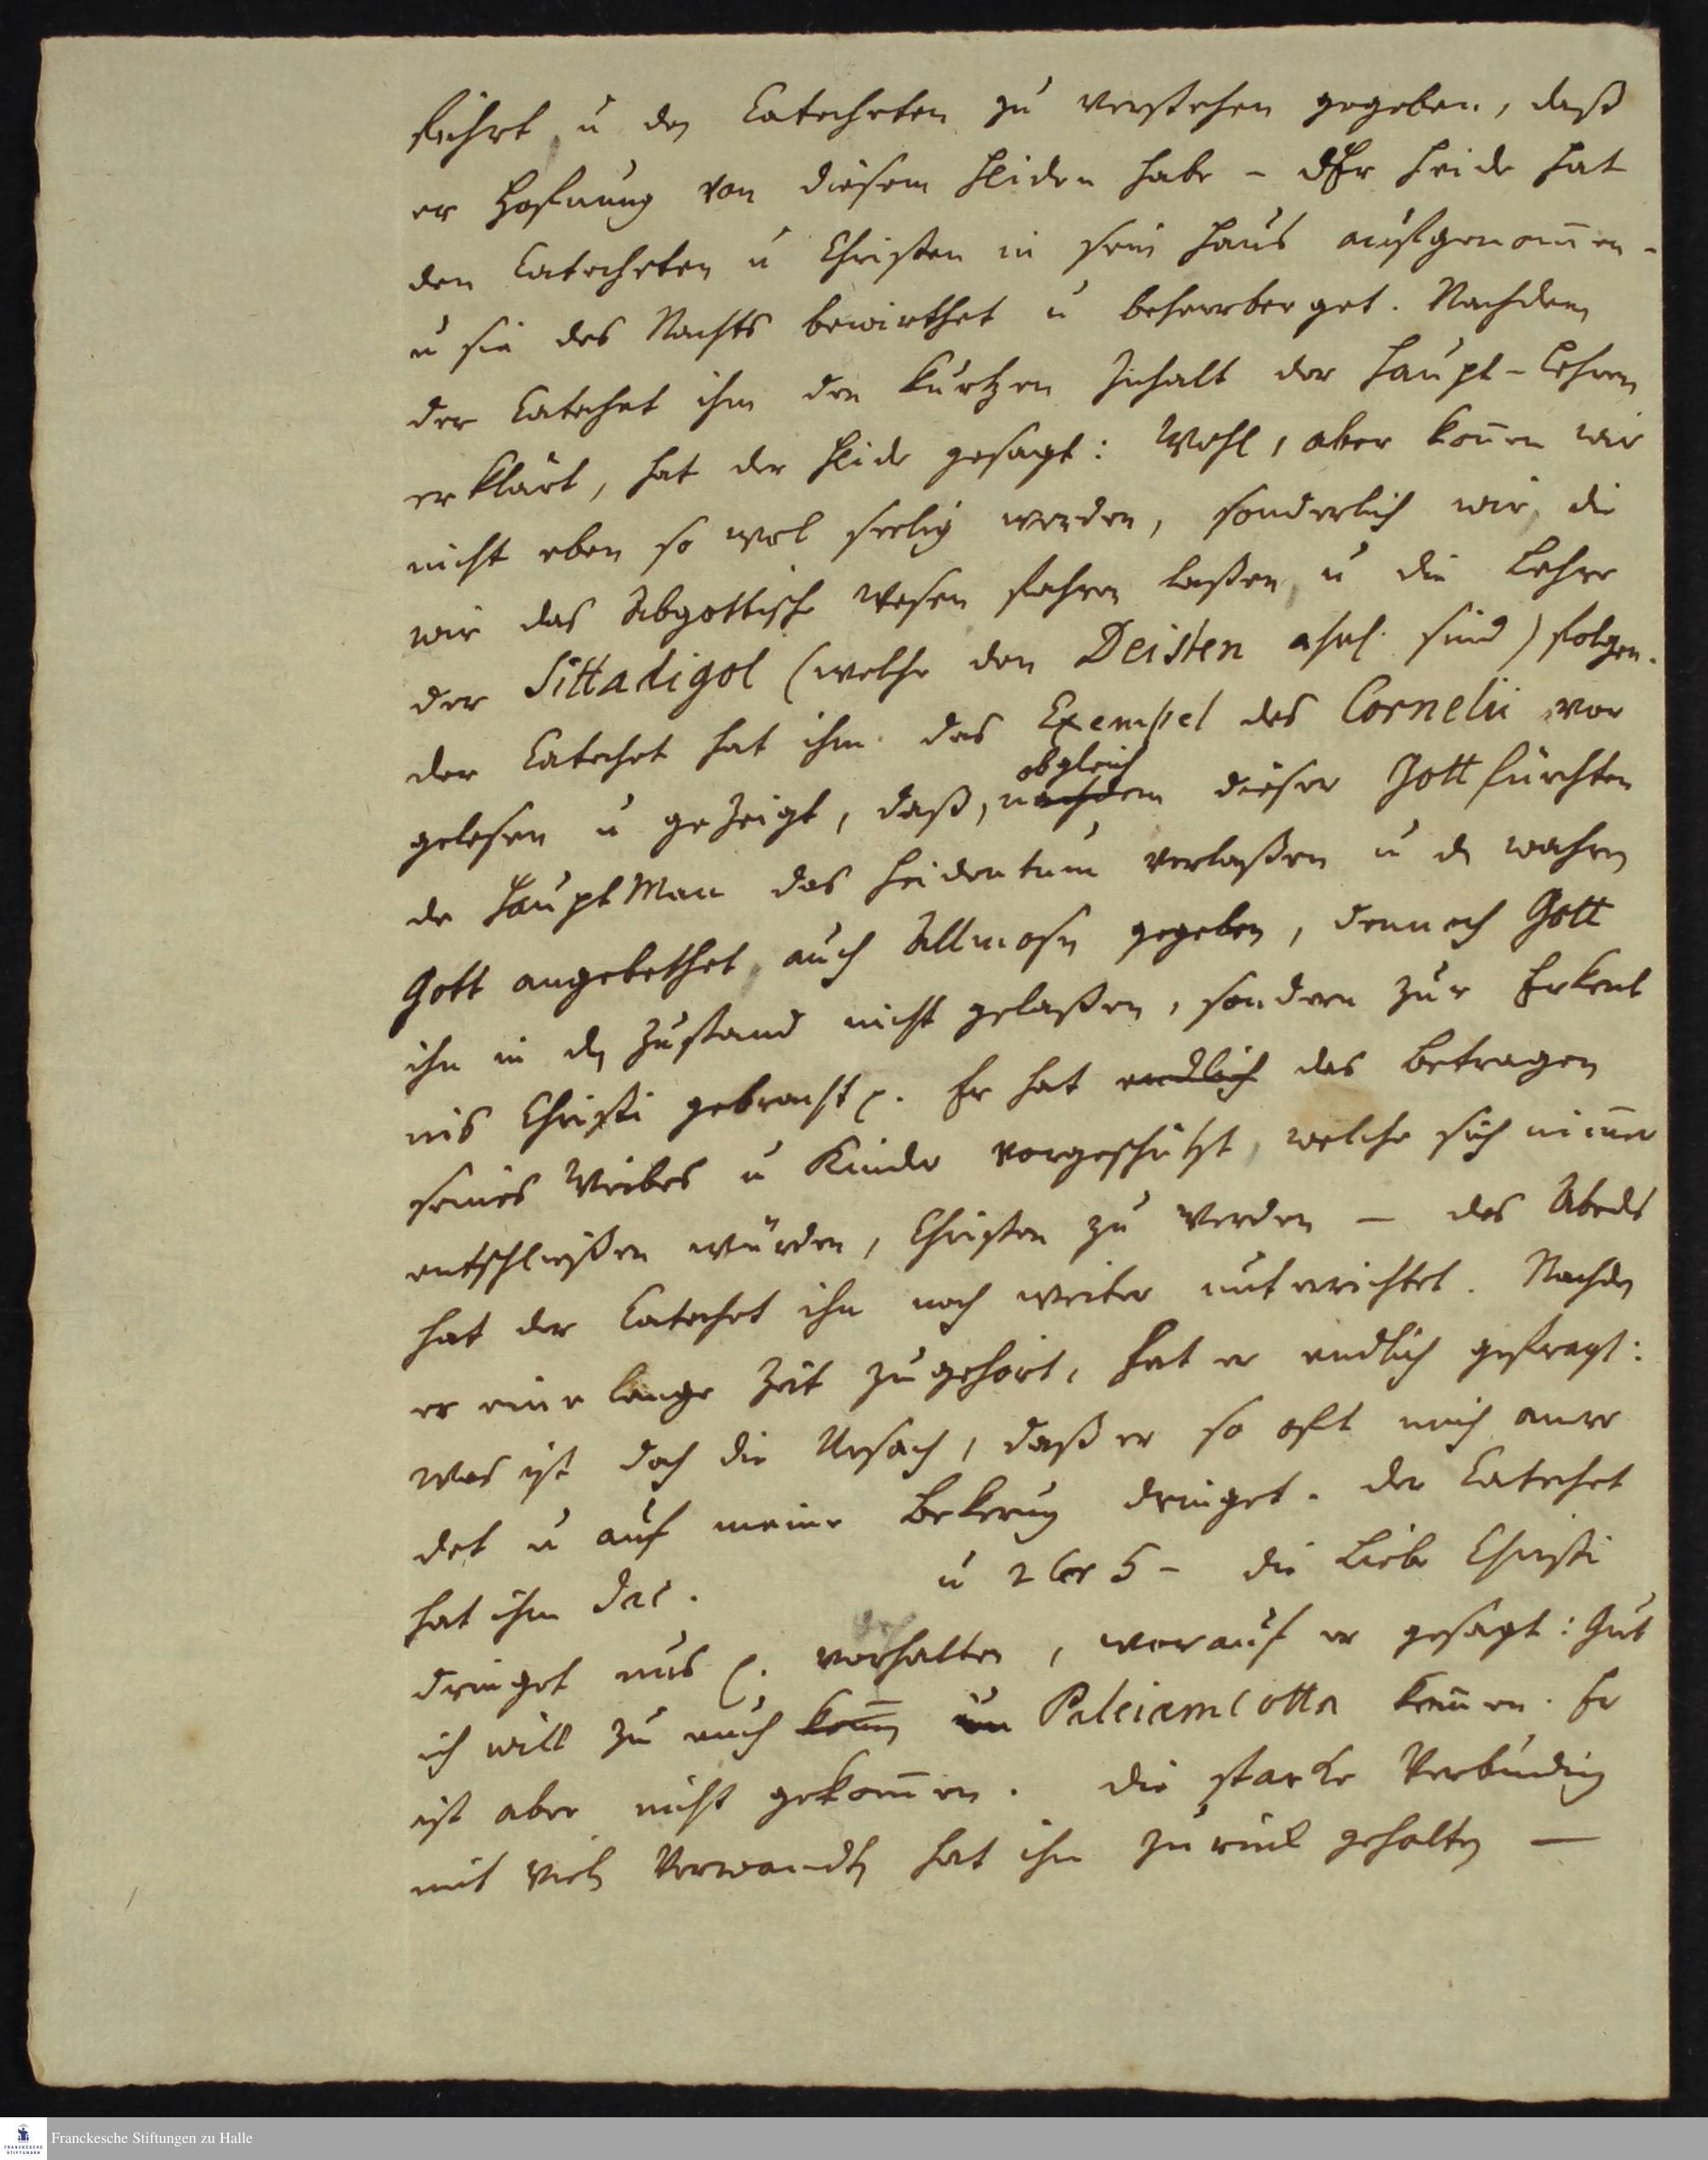 führt u den Catecheten zu verstehen gegeben, daß
er Hofnung von diesem Heiden habe - Der Heide hat
den Catecheten u Christen in sein Haus aufgenom̄en -
u sie des Nachts bewirthet u beherberget. Nachdem
der Catechet ihm den kurtzen Inhalt der Haupt-Lehren
erklärt, hat der Heide gesagt: Wohl, aber kon̄en wir
nicht eben so wol seelig werden, sonderlich wir, die
wir das Abgottische Wesen fahren laßen, u die Lehre
der Sittadigol (welche den Deisten ähnl. sind) folgen.
der Catechet hat ihm das Exempel des Cornelii vor
gelesen u gezeigt, daß, nachdem obgleich dieser Gottfürchten
de HauptMan das Heidentum verlaßen u den wahren
Gott angebethet, auch Allmosen gegeben, dennoch Gott
ihn in dem Zustand nicht gelaßen, sondern zur Erkent
nis Christi gebracht p. Er hat endlich das Betragen
seines Weibes u Kinder vorgeschützt, welche sich nim̄er
entschließen würden, Christen zu werden — des Abends
hat der Catechet ihn noch weiter unterrichtet. Nachdem
er eine lange Zeit zugehört, hat er endlich gefragt:
Was ist doch die Ursach, daß er so oft mich anre
det u auf meine Bekerung dringet. der Catechet
hat ihm u 2 Cor 5 - die Liebe Christi
dringet uns p. vorhalten, worauf er gesagt: Gut
ich will zu euch kom̄en Paleiamcotta kom̄en. Er
ist aber nicht gekom̄en. die starke Verbindung
mit vielen Verwandten hat ihn zurück gehalten —
Franckesche Stiftungen zu Halle
FRANCKESCHE
STIFTUNGEN